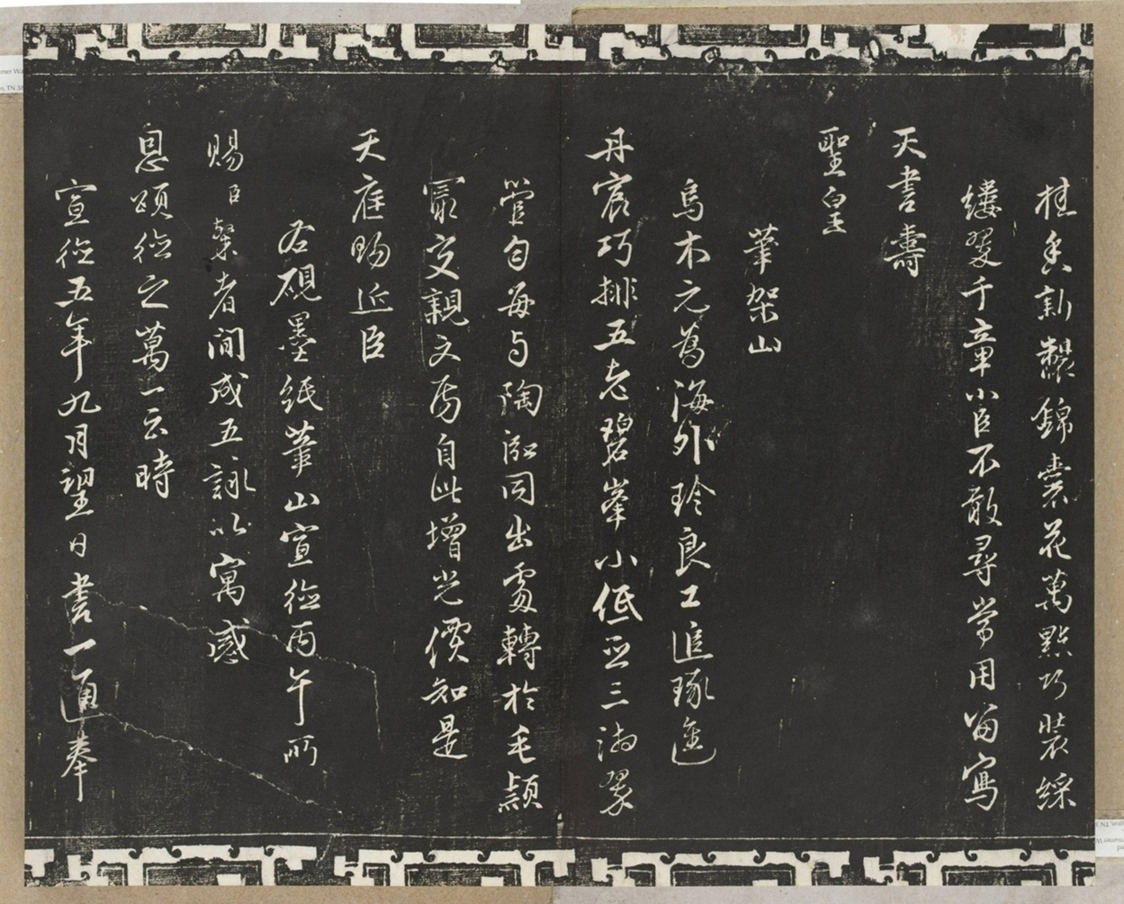 桂香新製錦囊花萬點巧裝綵
縷翠千章小臣不敢尋常用留寫
天書壽
聖皇
筆架山
烏木元爲海外珍良工追琢進
丹宸巧排五老碧峯小低亞三湘翠
管勾每與陶泓同出處轉於毛穎
最交親文房自此增光價知是
天庭賜近臣
右硯墨紙筆山宣德丙午所
賜臣 者間成五詠以寓感
息頌德之萬一云時
宣德五年九月望日書一通奉